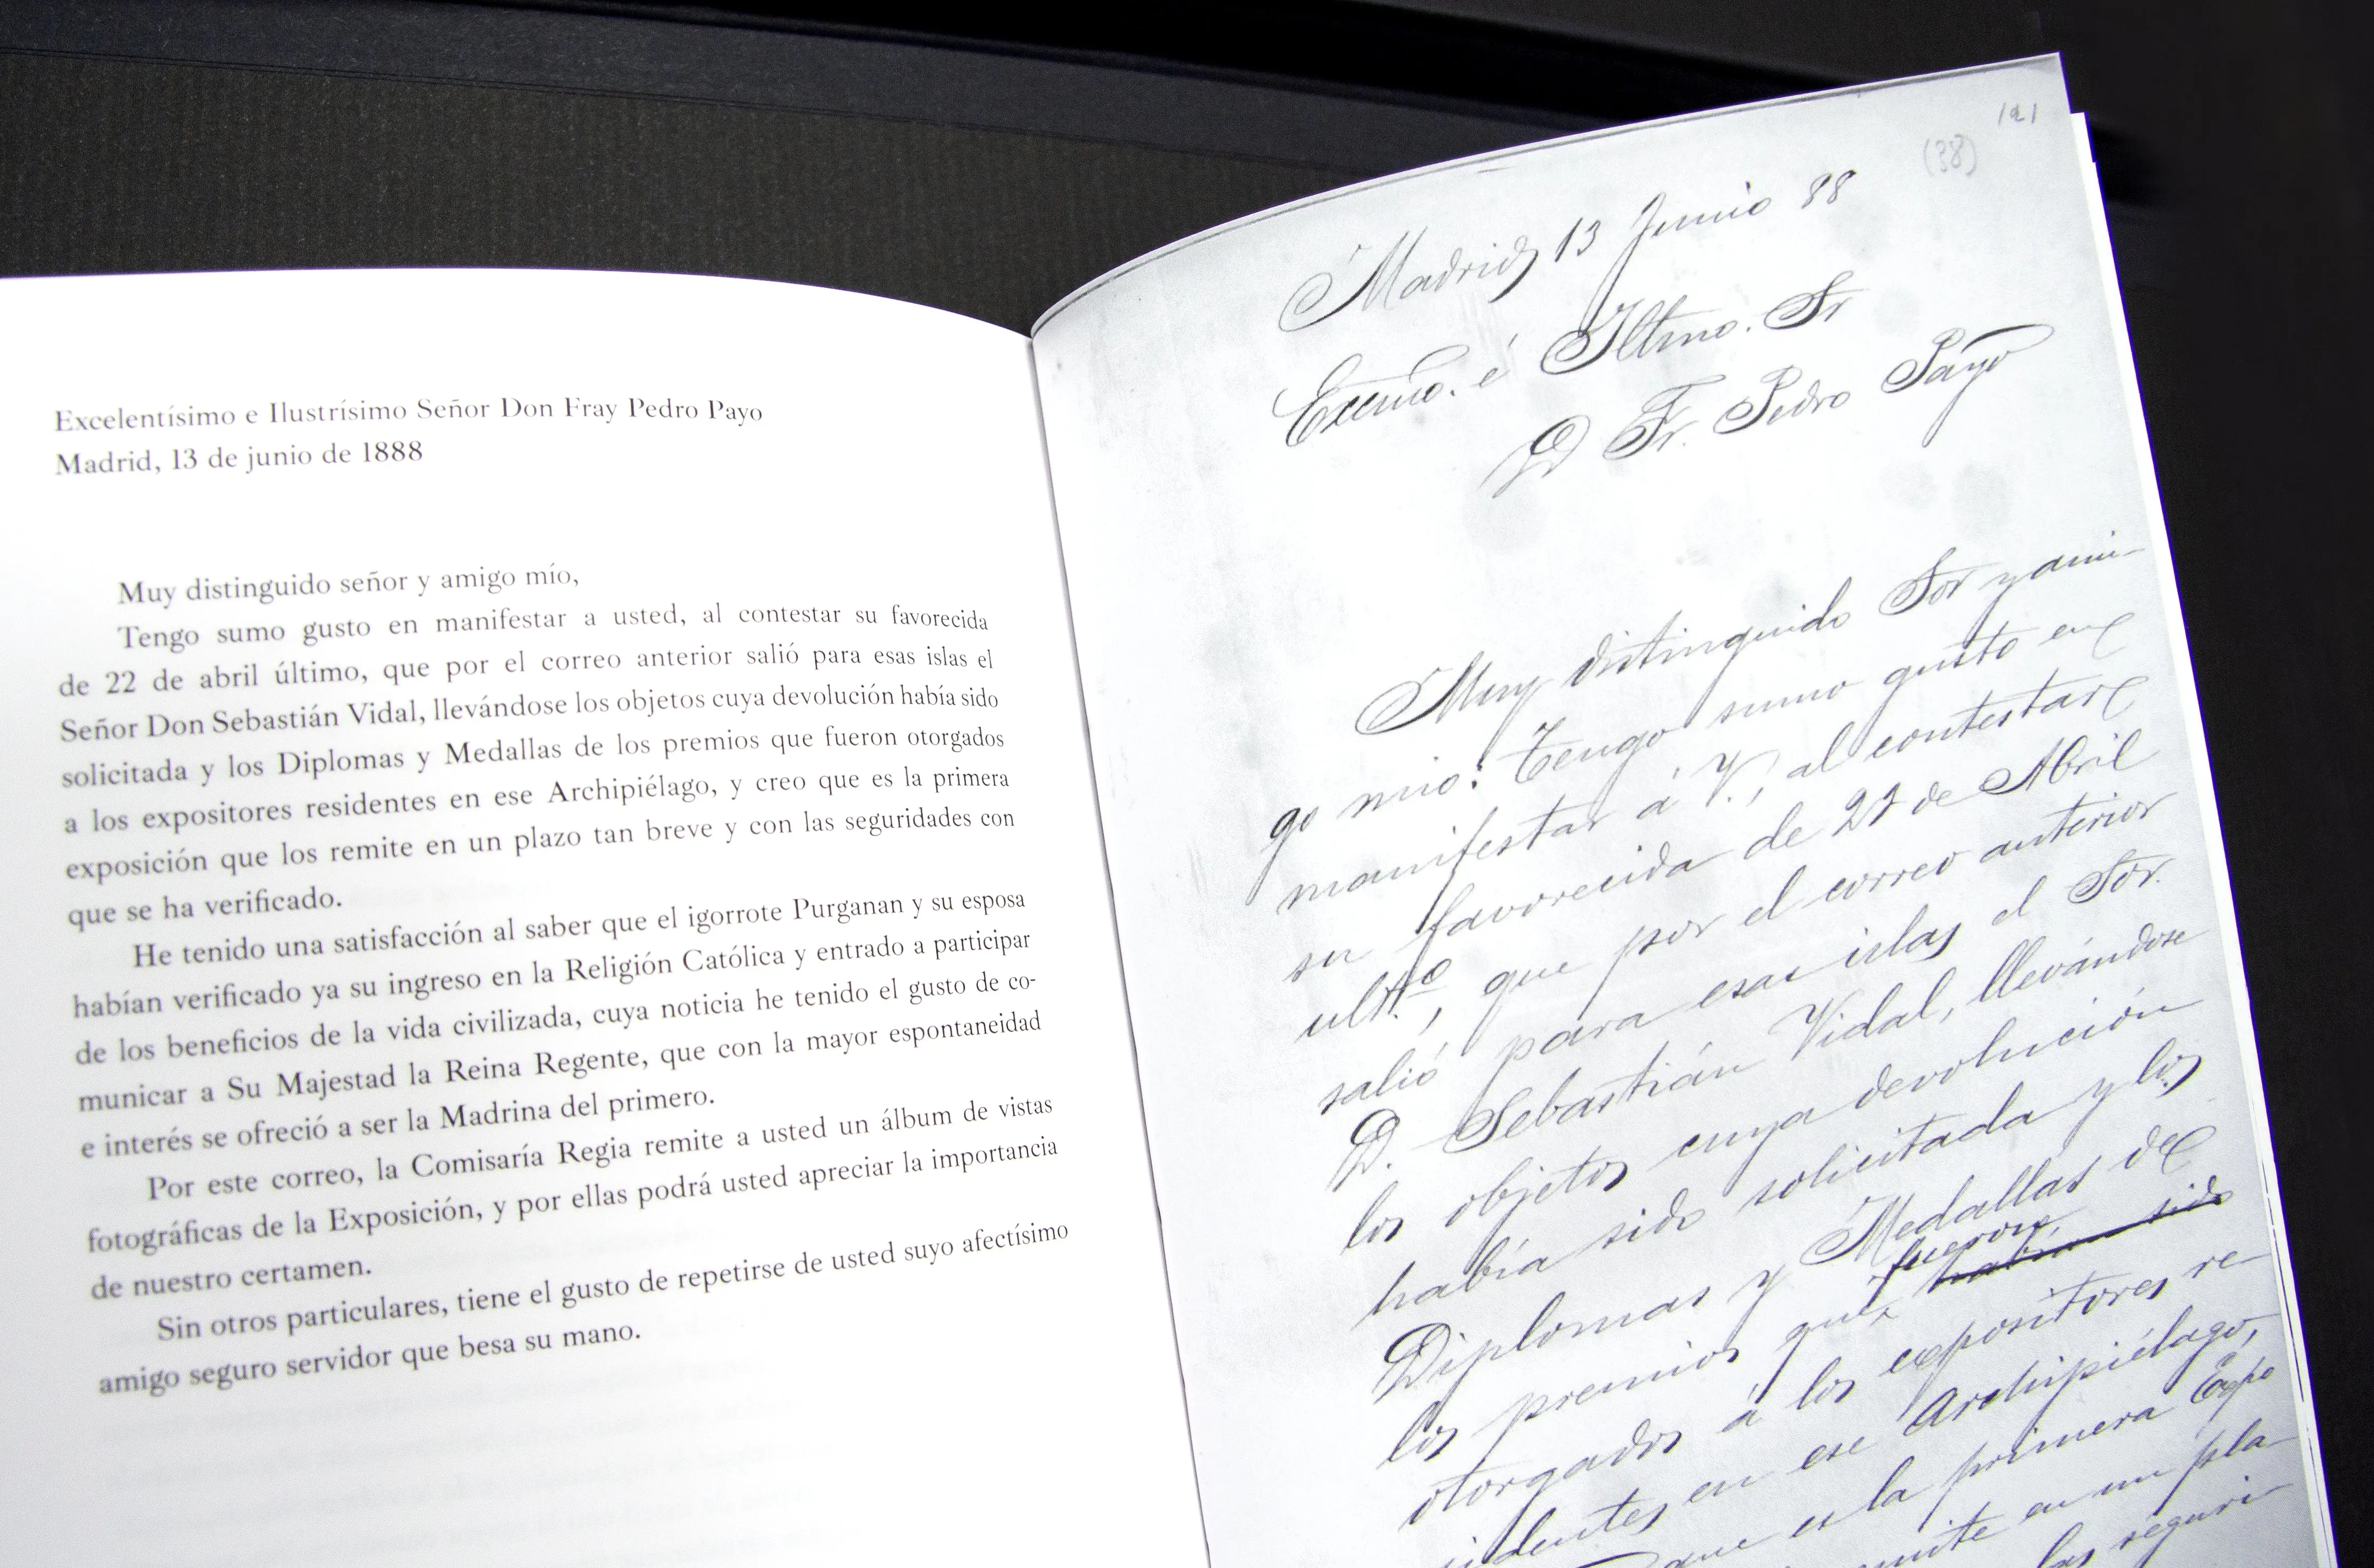 Excelentísimo e Ilustrísimo Señor Don Fray Pedro Payo
Madrid, 13 de junio de 1888
Muy distinguido señor y amigo mío,
Tengo sumo gusto en manifestar a usted, al contestar su favorecida
de 22 de abril último, que por el correo anterior salió para esas islas el
Señor Don Sebastián Vidal, llevándose los objetos cuya devolución había sido
solicitada y los Diplomas y Medallas de los premios que fueron otorgados
a los expositores residentes en ese Archipiélago, y creo que es la primera
exposición que los remite en un plazo tan breve y con las seguridades con
que se ha verificado.
He tenido una satisfacción al saber que el igorrote Purganan y su esposa
habían verificado ya su ingreso en la Religión Católica y entrado a participar
de los beneficios de la vida civilizada, cuya noticia he tenido el gusto de co-
municar a Su Majestad la Reina Regente, que con la mayor espontaneidad
e interés se ofreció a ser la Madrina del primero.
Por este correo, la Comisaría Regia remite a usted un álbum de vistas
fotográficas de la Exposición, y por ellas podrá usted apreciar la importancia
de nuestro certamen.
Sin otros particulares, tiene el gusto de repetirse de usted suyo afectísimo
amigo seguro servidor que besa su mano.
121
(38)
Madrid 13 Junio 88
Excmo. é Iltmo. Sr
D Fr. Pedro Payo
Muy distinguido Sor y ami-
go mio: Tengo sumo gusto en
manifestar á V., al contestar
su favorecida de 22 de Abril
ult.º, que por el correo anterior
salió para esas islas el Sor.
D. Sebastián Vidal, llevándose
los objetos cuya devolución
había sido solicitada y los
Diplomas y Medallas de
los premios que fueron habían sido
otorgados á los expositores re-
sidentes en ese Archipiélago,
que es la primera Expo
remite en un pla-
las seguri-